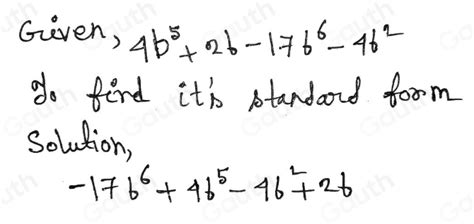 Given, 4b⁵+2b-17b⁶-4b²
To find it's standard form
Solution,
-17b⁶+4b⁵-4b²+2b